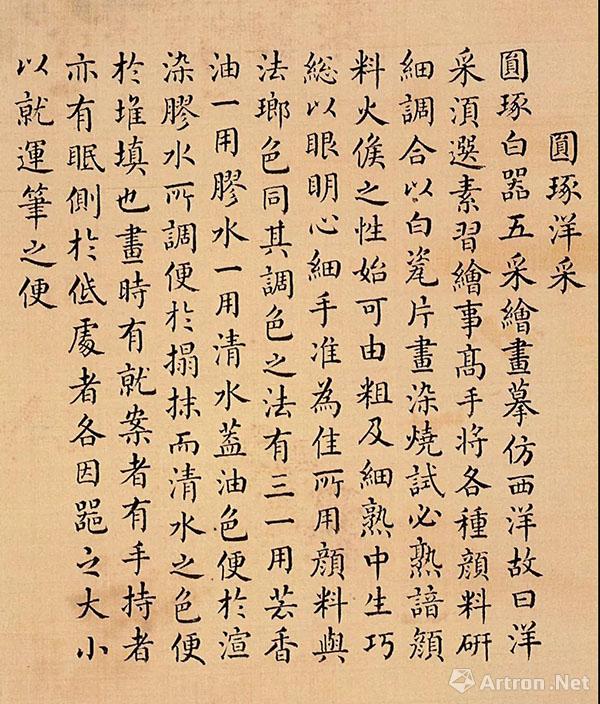 圓琢洋采
圓琢白器五采繪畫摹仿西洋故曰洋
采湏選素習繪事髙手將各種顔料研
細調合以白瓷片畫染燒試必熟諳顔
料火候之性始可由粗及細熟中生巧
総以眼明心細手准為佳所用顔料與
法瑯色同其調色之法有三一用芸香
油一用膠水一用清水葢油色便於渲
染膠水所調便於搨抹而清水之色便
於堆填也畫時有就案者有手持者
亦有眠側於低處者各因器之大小
以就運筆之便
Artron.Net